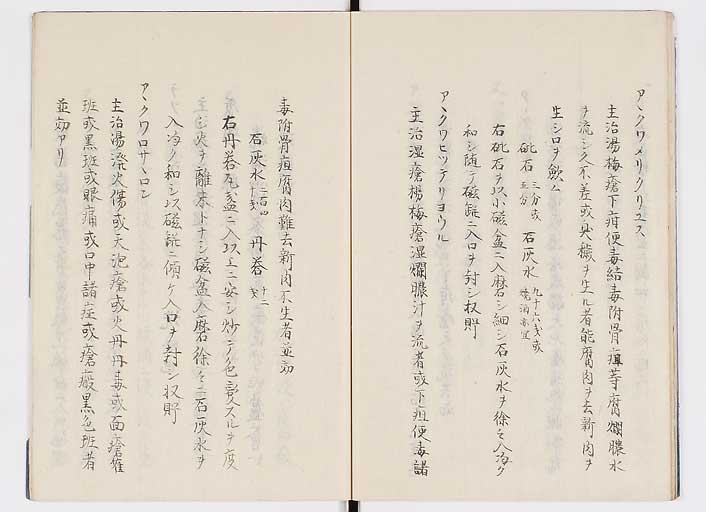 アヽクワメリクリユス
主治湯梅瘡下疳便毒結毒附骨疽等腐爛膿水
ヲ流シ久不差或臭穢ヲ生ル者能腐肉ヲ去新肉ヲ
生シロヲ歛ム
砒石 三分或五分 石灰水 九十六戔或
右砒石ヲ以小磁盆ニ入磨シ細シ石灰水ヲ徐々入海ク
和シ随テ磁罐ニ入口ヲ封シ収貯
アヽクワヒツテリヨウル
主治湿瘡楊梅瘡湿爛膿汁ヲ流者或下疳便毒諸
毒附骨疽腐肉難去新肉不生者並効
石灰水 丹礬
右丹礬瓦盆ニ入火上ニ安シ炒テ色変スルヲ度
主シ火ヲ離末トナシ磁盆入磨徐々ニ石灰水ヲ
入海ク和シ以磁罐ニ傾ケ入口ヲ封シ収貯
アヽクワロサーロン
主治湯溌火傷或天泡瘡或火丹丹毒或面瘡雀
斑或黒斑或眼痛或口中諸症或瘡瘢黒色斑者
並効アリ